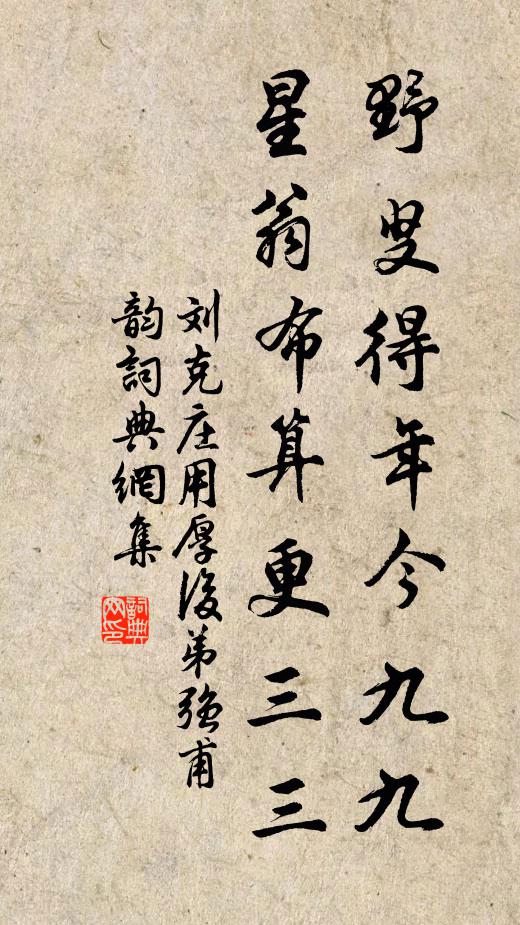 野叟得年今九九
星翁布算更三三
刘克庄用厚後弟強甫
韵詞典網集
詞典网印